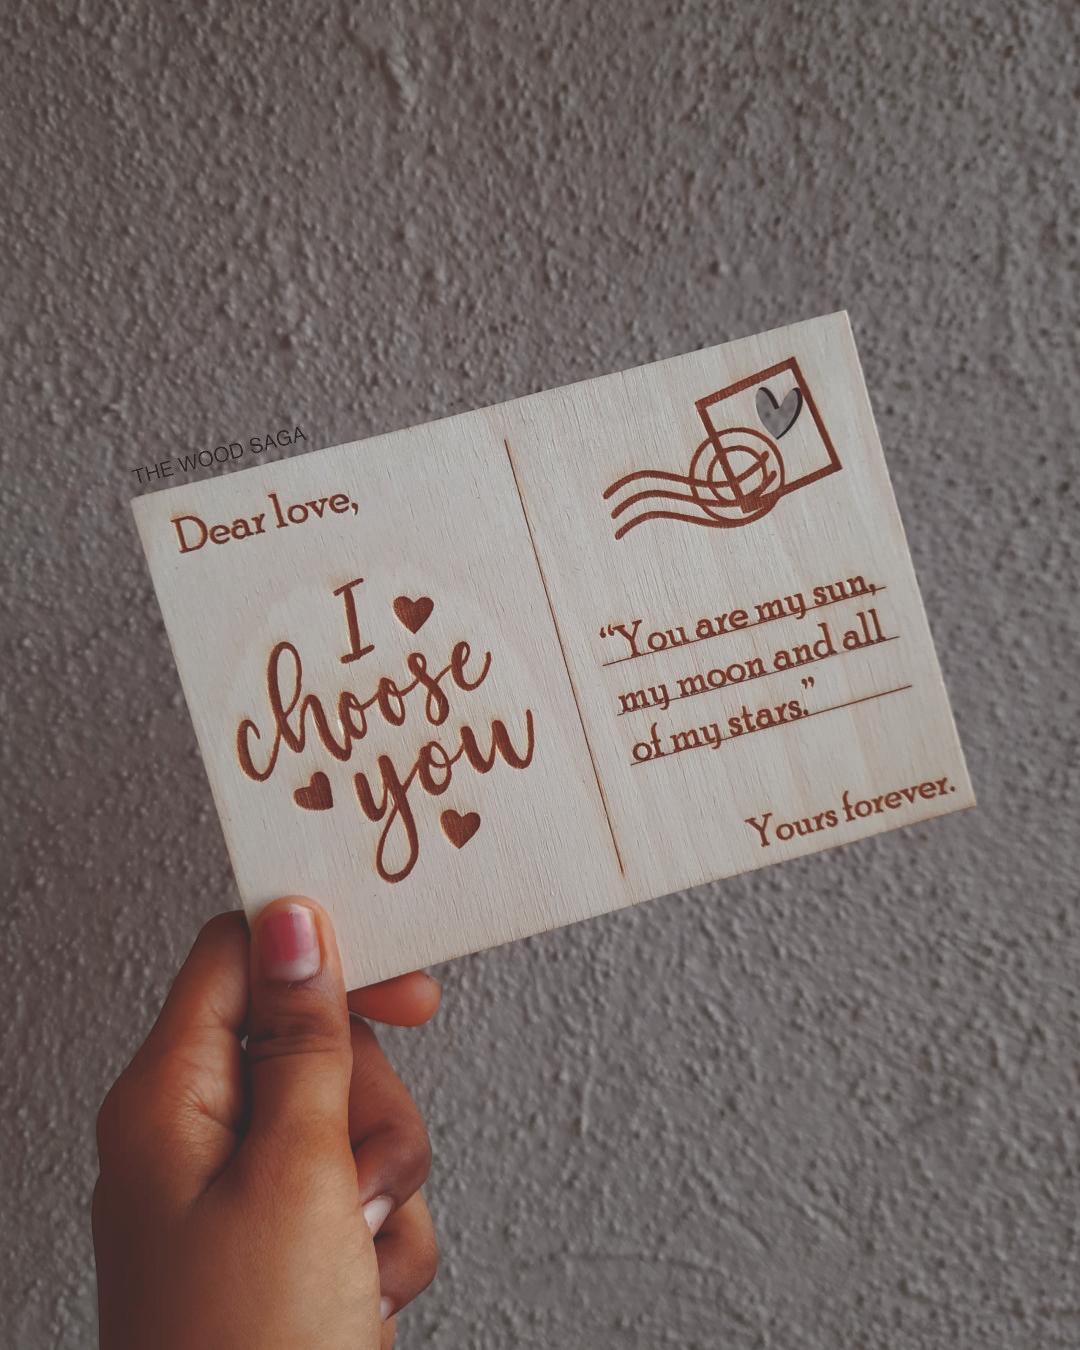 THE WOOD SAGA
Dear love,
I
choose
you
“You are my sun,
my moon and all
of my stars.”
Yours forever.